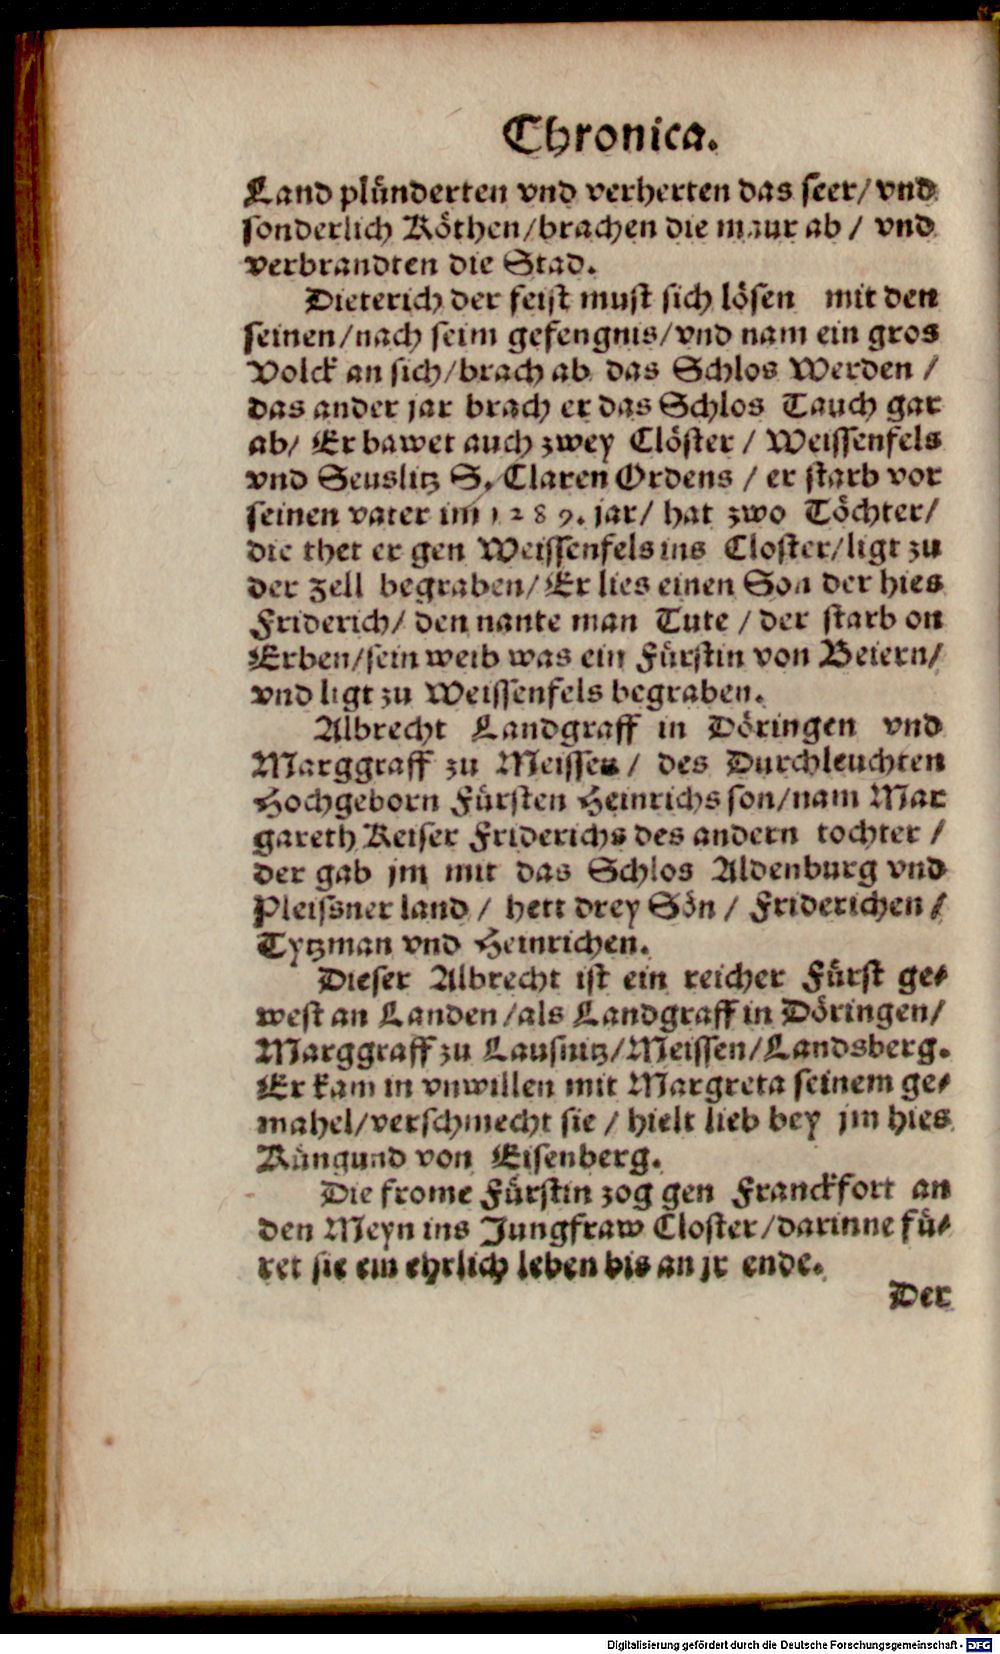 Chronica.
Land plünderten vnd verherten das seer/ vnd
sonderlich Köthen/brachen die maur ab / vnd
verbrandten die Stad.
Dieterich der feist must sich lösen mit den
seinen/nach seim gefengnis/vnd nam ein gros
Volck an sich/brach ab das Schlos Werden /
das ander jar brach er das Schlos Tauch gar
ab/ Er bawet auch zwey Clöster / Weissenfels
vnd Seuslitz S. Claren Ordens / er starb vor
seinen vater im 1289. jar/ hat zwo Töchter/
die thet er gen Weissenfels ins Closter/ligt zu
der Zell begraben/Er lies einen Son der hies
Friderich/ den nante man Tute / der starb on
Erben/sein weib was ein Fürstin von Beiern/
vnd ligt zu Weissenfels begraben.
Albrecht Landgraff in Döringen vnd
Marggraff zu Meissen/ des Durchleuchten
Hochgeborn Fürsten Heinrichs son/nam Mar
gareth Keiser Friderichs des andern tochter /
der gab jm mit das Schlos Aldenburg vnd
Pleissner land / hett drey Sön / Friderichen /
Tytzman vnd Heinrichen.
Dieser Albrecht ist ein reicher Fürst ge-
west an Landen/als Landgraff in Döringen/
Marggraff zu Lausnitz/Meissen/Landsberg.
Er kam in vnwillen mit Margreta seinem ge-
mahel/verschmecht sie / hielt lieb bey jm hies
Küngund von Eisenberg.
Die frome Fürstin zog gen Franckfort an
den Meyn ins Jungfraw Closter/darinne fü-
ret sie ein ehrlich leben bis an jr ende.
Der
Digitalisierung gefördert durch die Deutsche Forschungsgemeinschaft - DFG